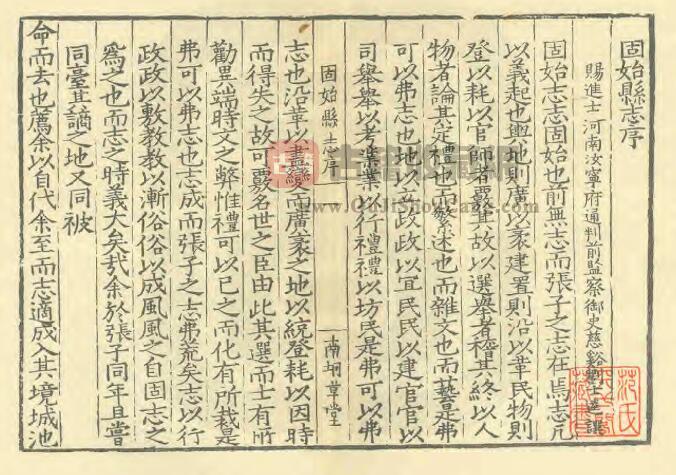 固始縣志序
賜進士河南汝寧府通判前監察御史慈谿
固始志志固始也前無志而張子之志在焉志凡
以義起也輿地則廣以袤建置則沿以革民物則
登以耗以官師者覈其故以選舉者稽其終以人
物者論其定禮也而繁述也而雜文也而藝是弗
可以弗志也地以立政政以宜民民以建官官以
司舉舉以考業業以行禮禮以坊民是弗可以弗
固始縣志序
南坰草堂
志也沿革以盡變而廣袤之地以統登耗以因時
而得失之故可覈名世之臣由此其選而士有所
勸異端時文之弊惟禮可以已之而化有所裁是
弗可以弗志也志成而張子之志弗荒矣志以行
政政以敷教教以漸俗俗以成風風之自固志之
爲之也而志之時義大矣哉余於張子同年且嘗
同臺其謫之地又同被
命而去也薦余以自代余至而志適成入其境城池
范氏
藏書
www.